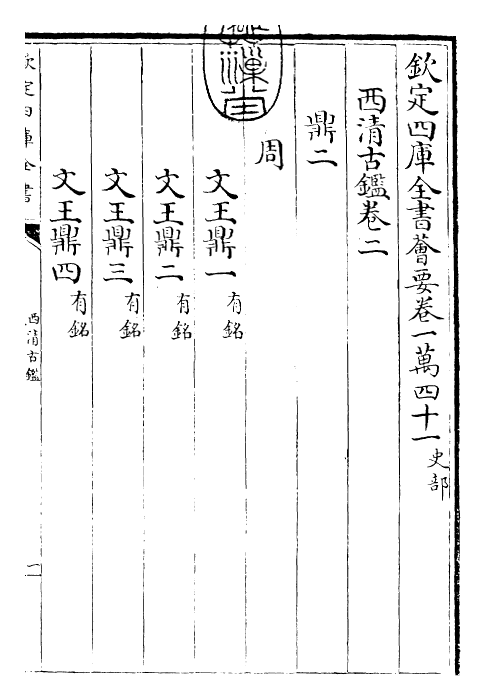 欽定四庫全書薈要卷一萬四十一史部
西清古鑑卷二
鼎二
周
文王鼎一有銘
文王鼎二有銘
文王鼎三有銘
文王鼎四有銘
欽定四庫全書
西清古鑑
一